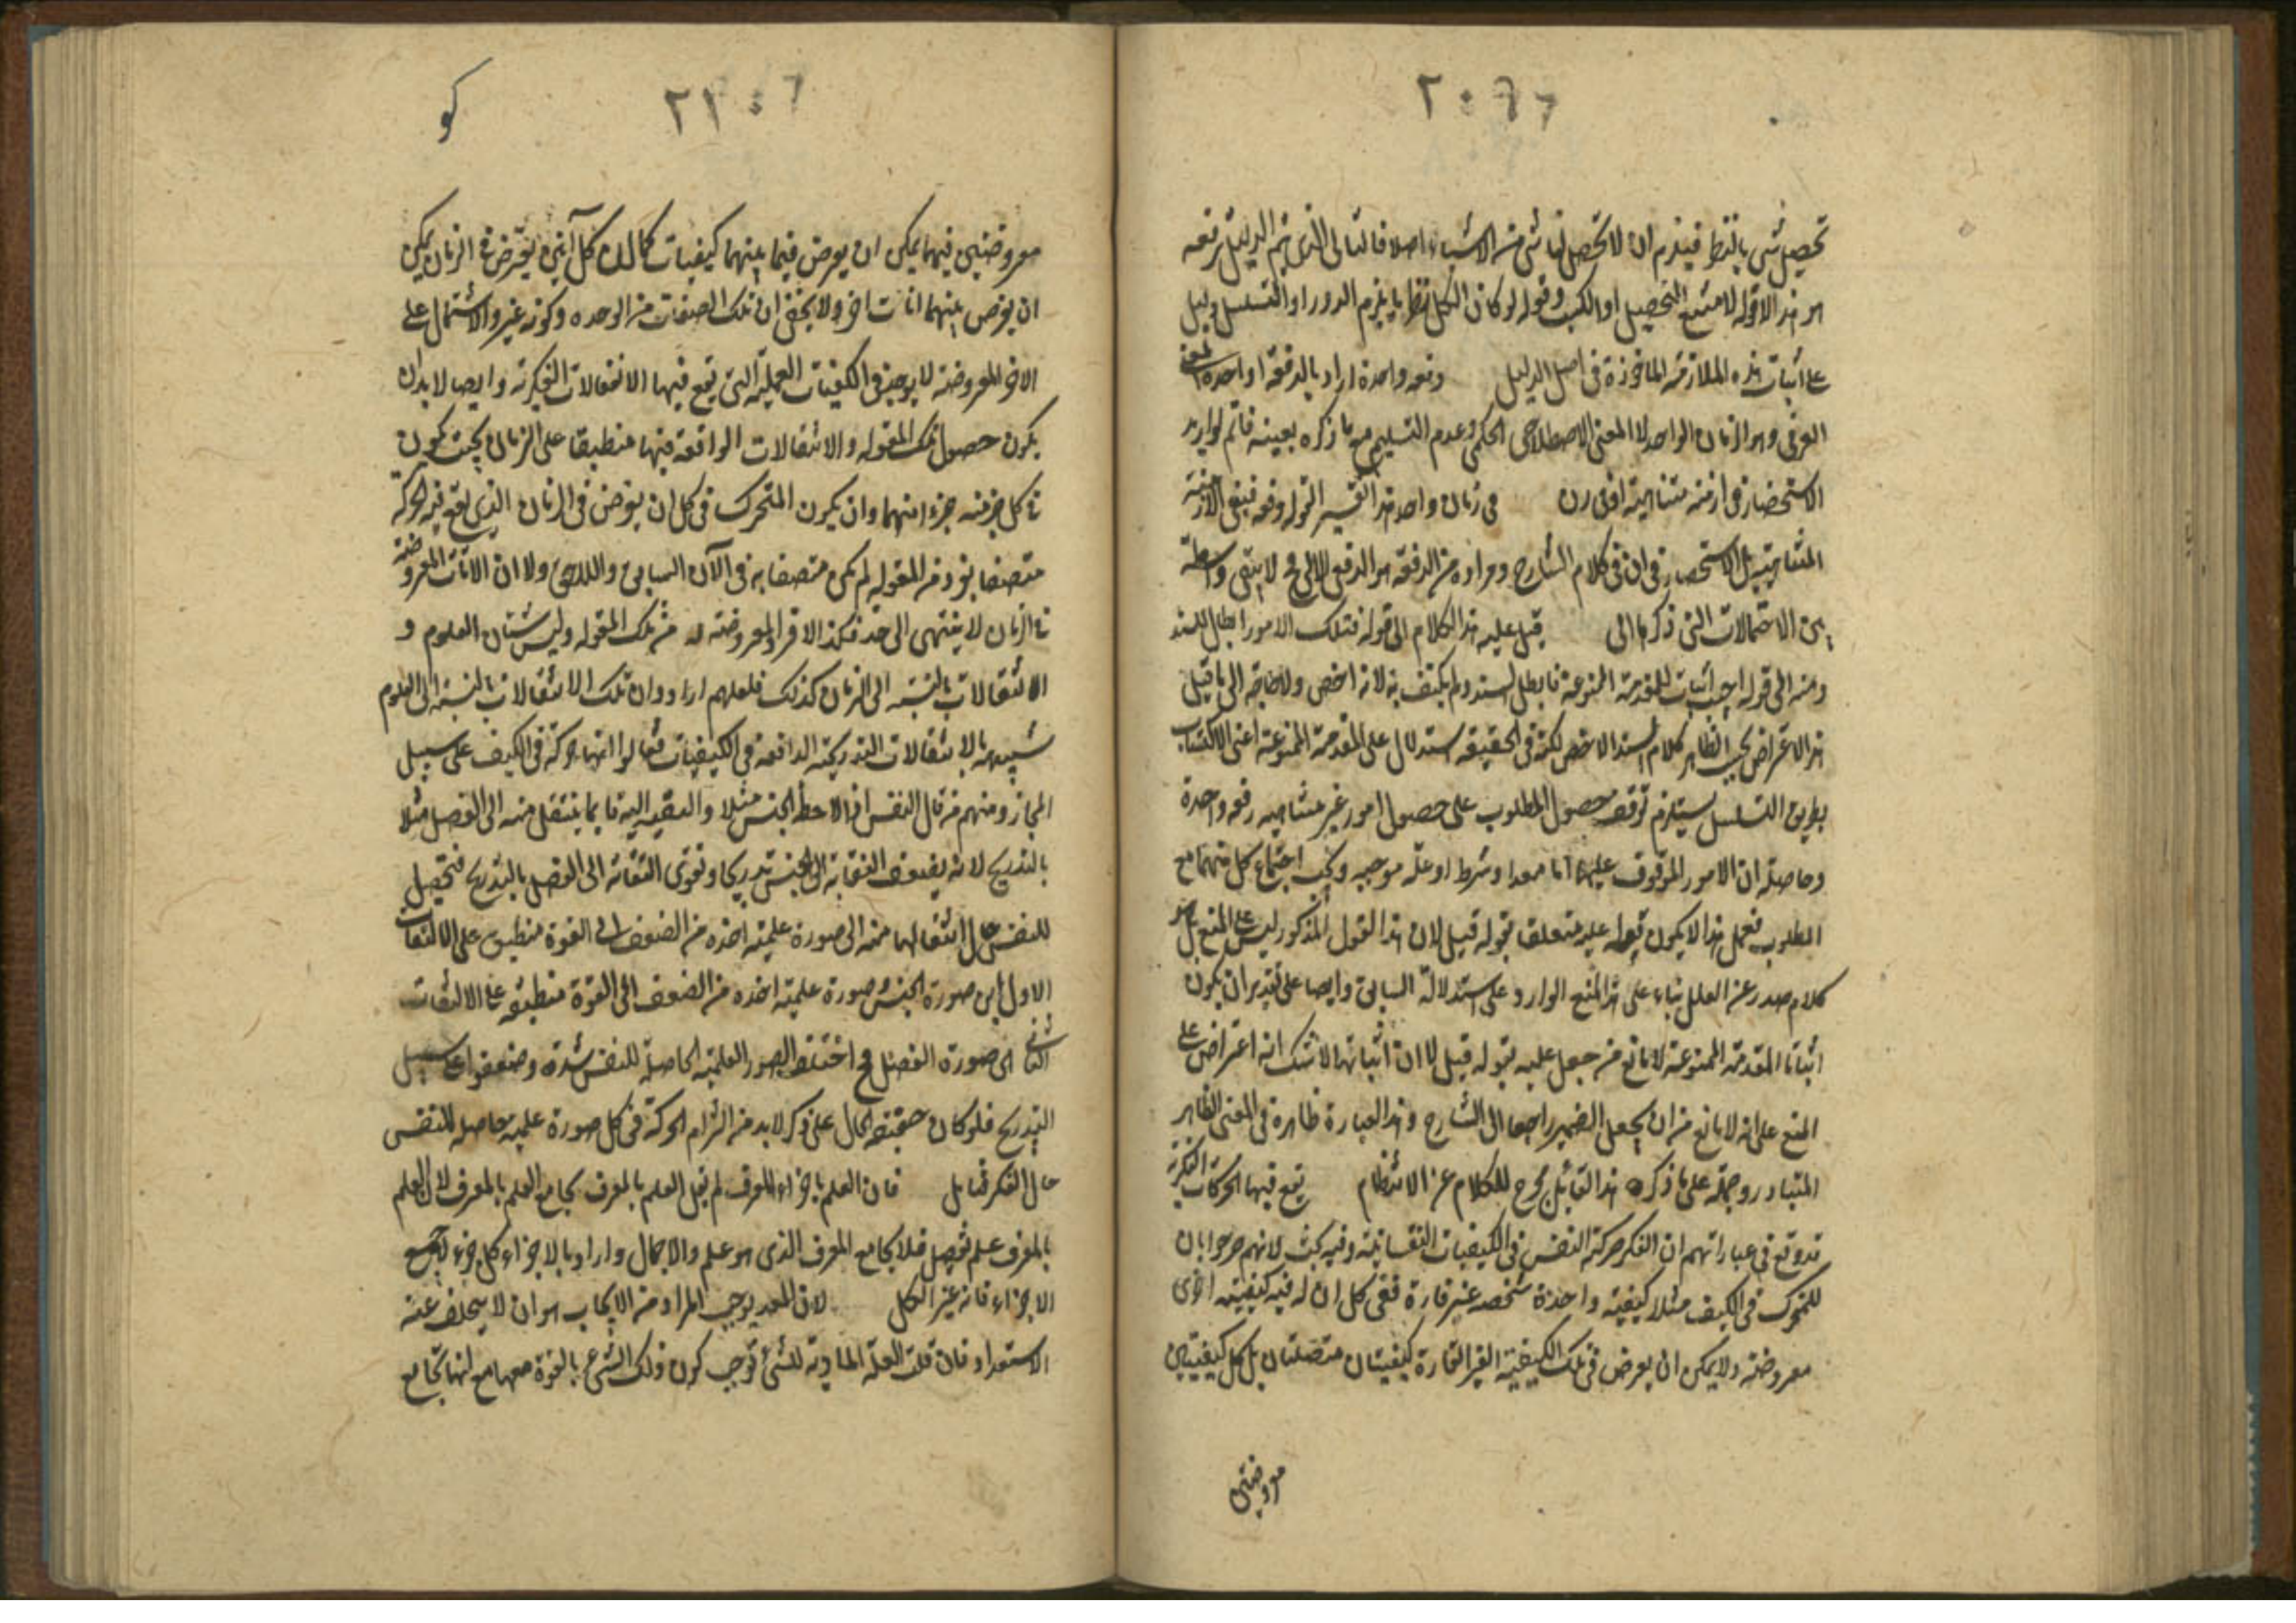 تحصيل شئ بالنظر فيلزم ان لا تحصل لنا شئ من الاشياء اصلا فالتالى الذى يتم الدليل برفعه
هو هذا لا قوله لامتنع التحصيل او الكسب وقوله لو كان الكل نظريا يلزم الدور او التسلسل دليل
على اثبات هذه الملازمة الماخوذة فى اصل الدليل دفعه واحدة اراد بالدفعة الواحدة المعنى
العرفى وهو الزمان الواحد لا المعنى الاصطلاحى الحكمى وعدم التسليم مع ما ذكره بعينه قائم لو اريد
الاستحضار فى ازمنة متناهية فى زمان واحد هذا تفسير لقوله دفعه فبقى الازمنة
المتناهية بل الاستحضار فى ان فى كلام الشارح ومراده من الدفعة هو الدفعى لا يبقى واسطة
بين الاحتمالات التى ذكرها الى قيل عليه هذا الكلام الى قوله فتلك الامور ابطال للسند
ومنه الى قوله اجيب اثبات للمقدمة الممنوعة فابطل السند ولم يكتف به لانه اخص ولا حاجة الى ما قيل
هذا الاعتراض بحسب الظاهر كلام السند الاخص لكنه فى الحقيقه استدلال على المقدمة الممنوعة اعنى الاكتساب
بطريق التسلسل يستلزم توقف حصول المطلوب على حصول امور غير متناهيه دفعه واحدة
وحاصله ان الامور الموقوف عليها اما معد او شرط او علة موجبه ويجب اجتماع كل منهما مع
المطلوب فعلى هذا لا يكون قوله عليه متعلق بقوله قيل لان هذا القول المذكور ليس على المنع بل هو
كلام صدر عن المعلل بناء على هذا المنع الوارد على استدلاله السابق وايضا على تقدير ان يكون
اثباتا للمقدمة الممنوعة لا مانع من جعل عليه بقوله قيل لان اثباتها لا شك انه اعتراض على
المنع على انه لا مانع من ان يجعل الضمير راجعا الى الشارح وهذا العبارة ظاهرة فى المعنى الظاهر
المتبادر وحمله على ما ذكره هذا القائل مخرج للكلام عن الانتظام تقع فيها الحركات الفكرية
قد وقع فى عباراتهم ان الفكر حركة النفس فى الكيفيات النفسانية وفيه بحث لانهم صرحوا بان
للمتحرك فى الكيف مثلا كيفية واحدة شخصه غير قارة ففى كل ان له فيه كيفية اخرى
معروضة ولا يمكن ان يعرض فى تلك الكيفية الغير القارة كيفيتان متصلتان بل كل كيفيتين
معروضتين
٢٠
كو
٢١
معروضتين فيهما يمكن ان يعرض فيما بينهما كيفيات كما ان كل آنين يفرض فى الزمان يمكن
ان يفرض بينهما انات اخر ولا يخفى ان تلك الصفات من الوحده وكونه غير والاشتمال على
الافراد المعروضة لا يوجد فى الكيفيات العملية التى تقع فيها الانتقالات الفكرية وايضا لا بد ان
يكون حصول تلك المقوله والانتقالات الواقعة فيها منطبقا على الزمان بحيث يكون
فى كل جزء منه جزء منهما وان يكون المتحرك فى كل ان يفرض فى الزمان الذى يقع فيه الحركة
متصفا بفرد من المقوله لم يكن متصفا به فى الآن السابق واللاحق ولا ان الانات المعروضة
فى الزمان لا ينتهى الى حد فكذا الافراد المعروضة له من تلك المقوله وليس شان العلوم و
الانتقالات بالنسبة الى الزمان كذلك فلعلهم ارادوا ان تلك الانتقالات بالنسبة الى العلوم
شبيهة بالانتقالات التدريجية الواقعة فى الكيفيات فقالوا انها حركة فى الكيف على سبيل
المجاز ومنهم من قال النفس اذا لاحظ الجنس مثلا والتفت اليه فانما ينتقل منه الى الفصل مثلا
بالتدريج لانه يضعف التفاته الى الجنس تدريجا وتقوى التفاته الى الفصل بالتدريج فتحصل
للنفس حال انتقالها منه الى صورة علمية اخذه من الضعف الى القوة منطبق على الالتفات
الاول اى صورة الجنس وصورة علمية اخذه من الضعف الى القوة منطبقه على الالتفات
الثانى اى صورة الفصل فح اختلف الصور العلمية الحاصلة للنفس شدة وضعفا على سبيل
التدريج فلو كان حقيقة الحال على ذكر لا بد من التزام الحركة فى كل صورة علميه حاصله للنفس
حال الفكر فتامل فان العلم باجزاء المعرف لم يقل العلم بالمعرف يجامع العلم بالمعرف لان العلم
بالمعرف علم تفصيل فلا يجامع المعرف الذى هو علم والاجمال واراد بالاجزاء كل جزء لا جميع
الاجزاء فانه عين الكل لان المعد يوجب المراد من الايجاب هو ان لا يتخلف عنه
الاستعداد فان قلت العلة المادية للشئ توجب كون ذلك الشئ بالقوة معها مع انها تجامع